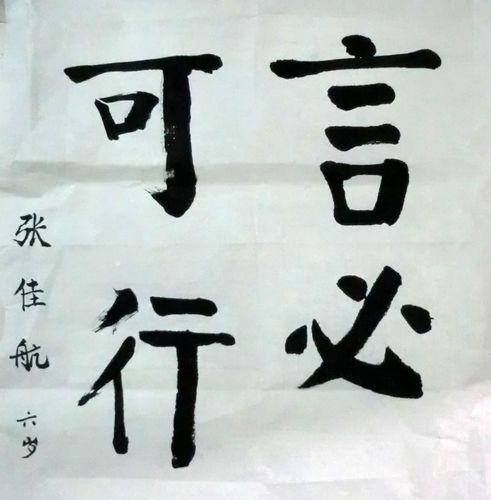 言必
可行
张佳航 六岁